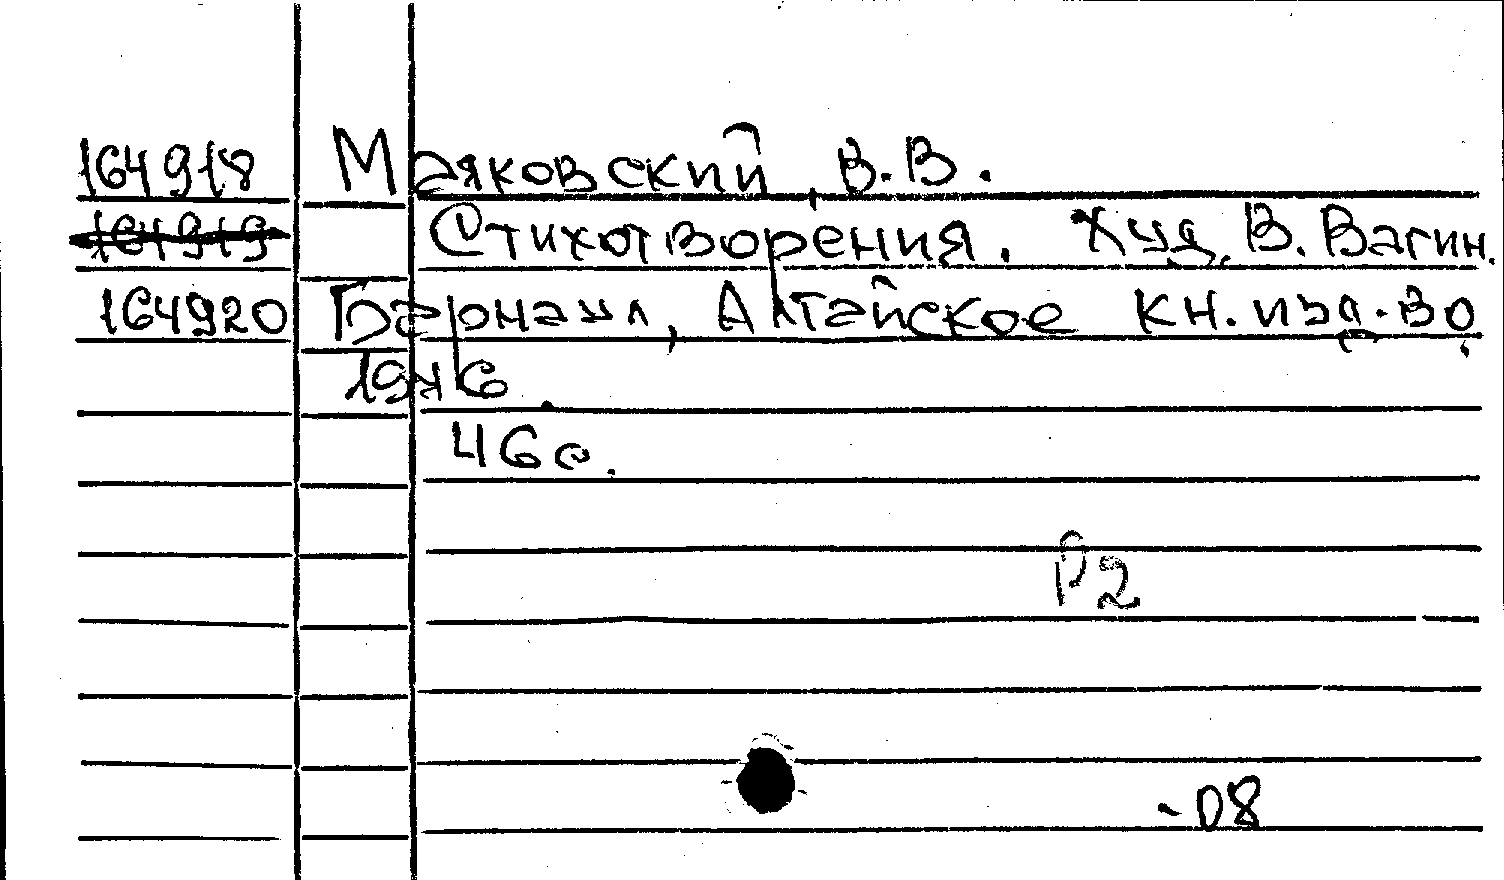 164918 Маяковский, В.В.
164919 Стихотворения. Худ. В. Вагин.
164920 Барнаул, Алтайское кн. изд-во,
1976.
46 с.
Р2
-08